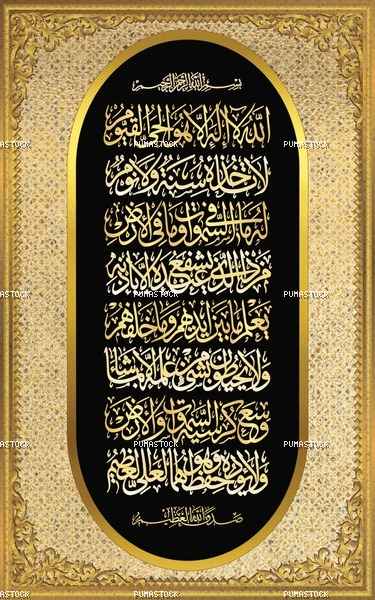 بسم الله الرحمن الرحيم
الله لا إله إلا هو الحي القيوم
لا تأخذه سنة ولا نوم
له ما في السموات وما في الأرض
من ذا الذي يشفع عنده إلا بإذنه
يعلم ما بين أيديهم وما خلفهم
ولا يحيطون بشيء من علمه إلا بما شاء
وسع كرسيه السموات والأرض
ولا يؤده حفظهما وهو العلي العظيم
صدق الله العظيم
PUMASTOCK PUMASTOCK PUMASTOCK
PUMASTOCK PUMASTOCK PUMASTOCK
PUMASTOCK PUMASTOCK PUMASTOCK
PUMASTOCK PUMASTOCK PUMASTOCK